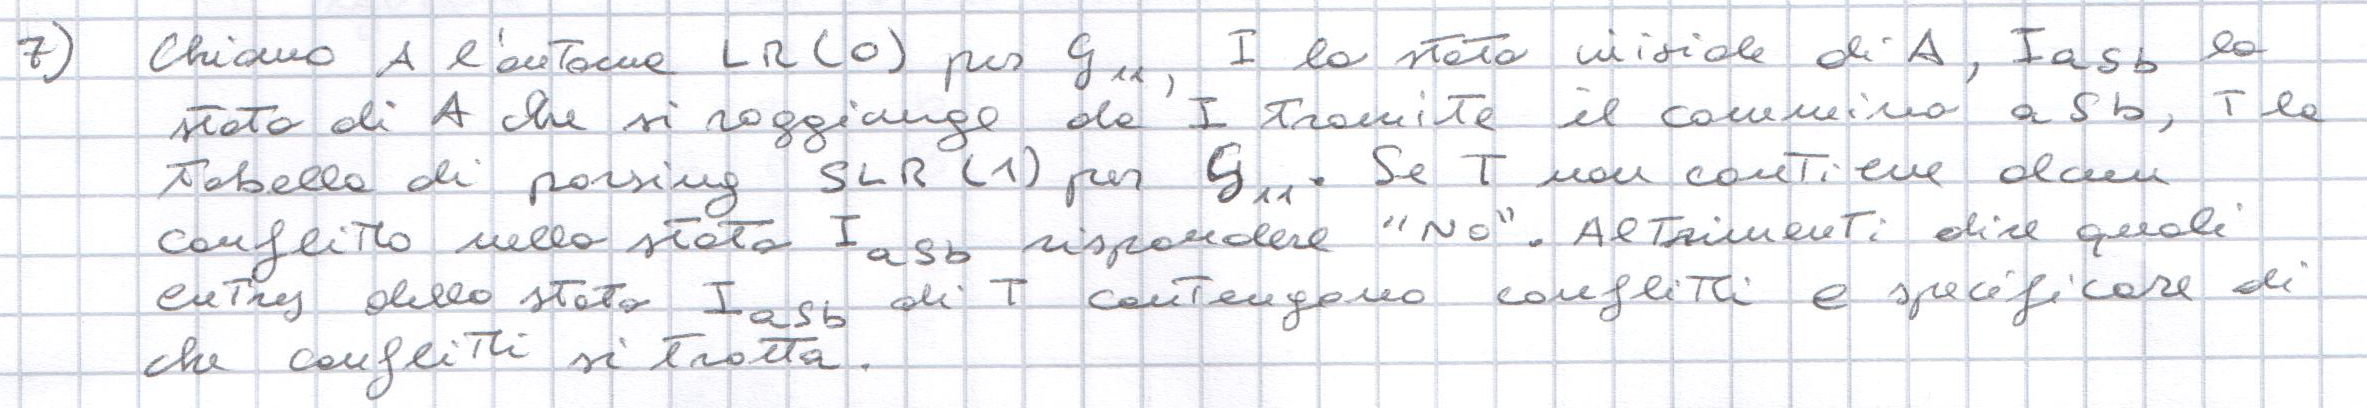 7) Chiamo A l'automa LR(0) per G₁₁, I lo stato iniziale di A, I_aSb lo
stato di A che si raggiunge da I tramite il cammino aSb, T la
tabella di parsing SLR(1) per G₁₁. Se T non contiene alcun
conflitto nello stato I_aSb rispondere "NO". Altrimenti dire quali
entry dello stato I_aSb di T contengono conflitti e specificare di
che conflitti si tratta.